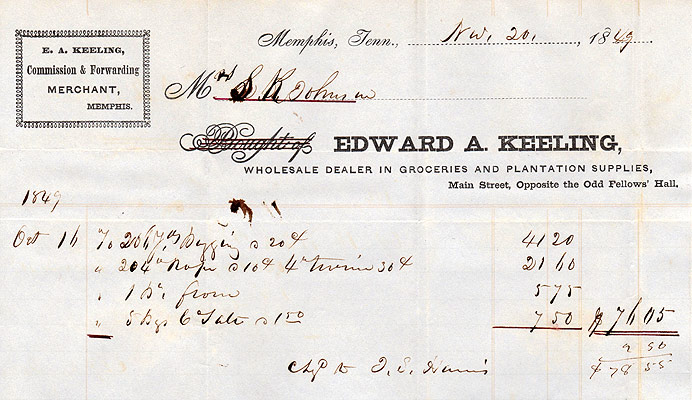 E. A. KEELING,
Commission & Forwarding
MERCHANT,
MEMPHIS.
Memphis, Tenn., Nov. 20, 1849
Mrs S R Johnson
Bought of EDWARD A. KEELING,
WHOLESALE DEALER IN GROCERIES AND PLANTATION SUPPLIES,
Main Street, Opposite the Odd Fellows' Hall.
1849
Oct 16 To Bagging 20¢ 41 20
" 204 Rope 10¢ 4 twine 30¢ 21 60
" 1 5 75
" 5 1 50 7 50 $ 76 05
2 50
$ 78 55